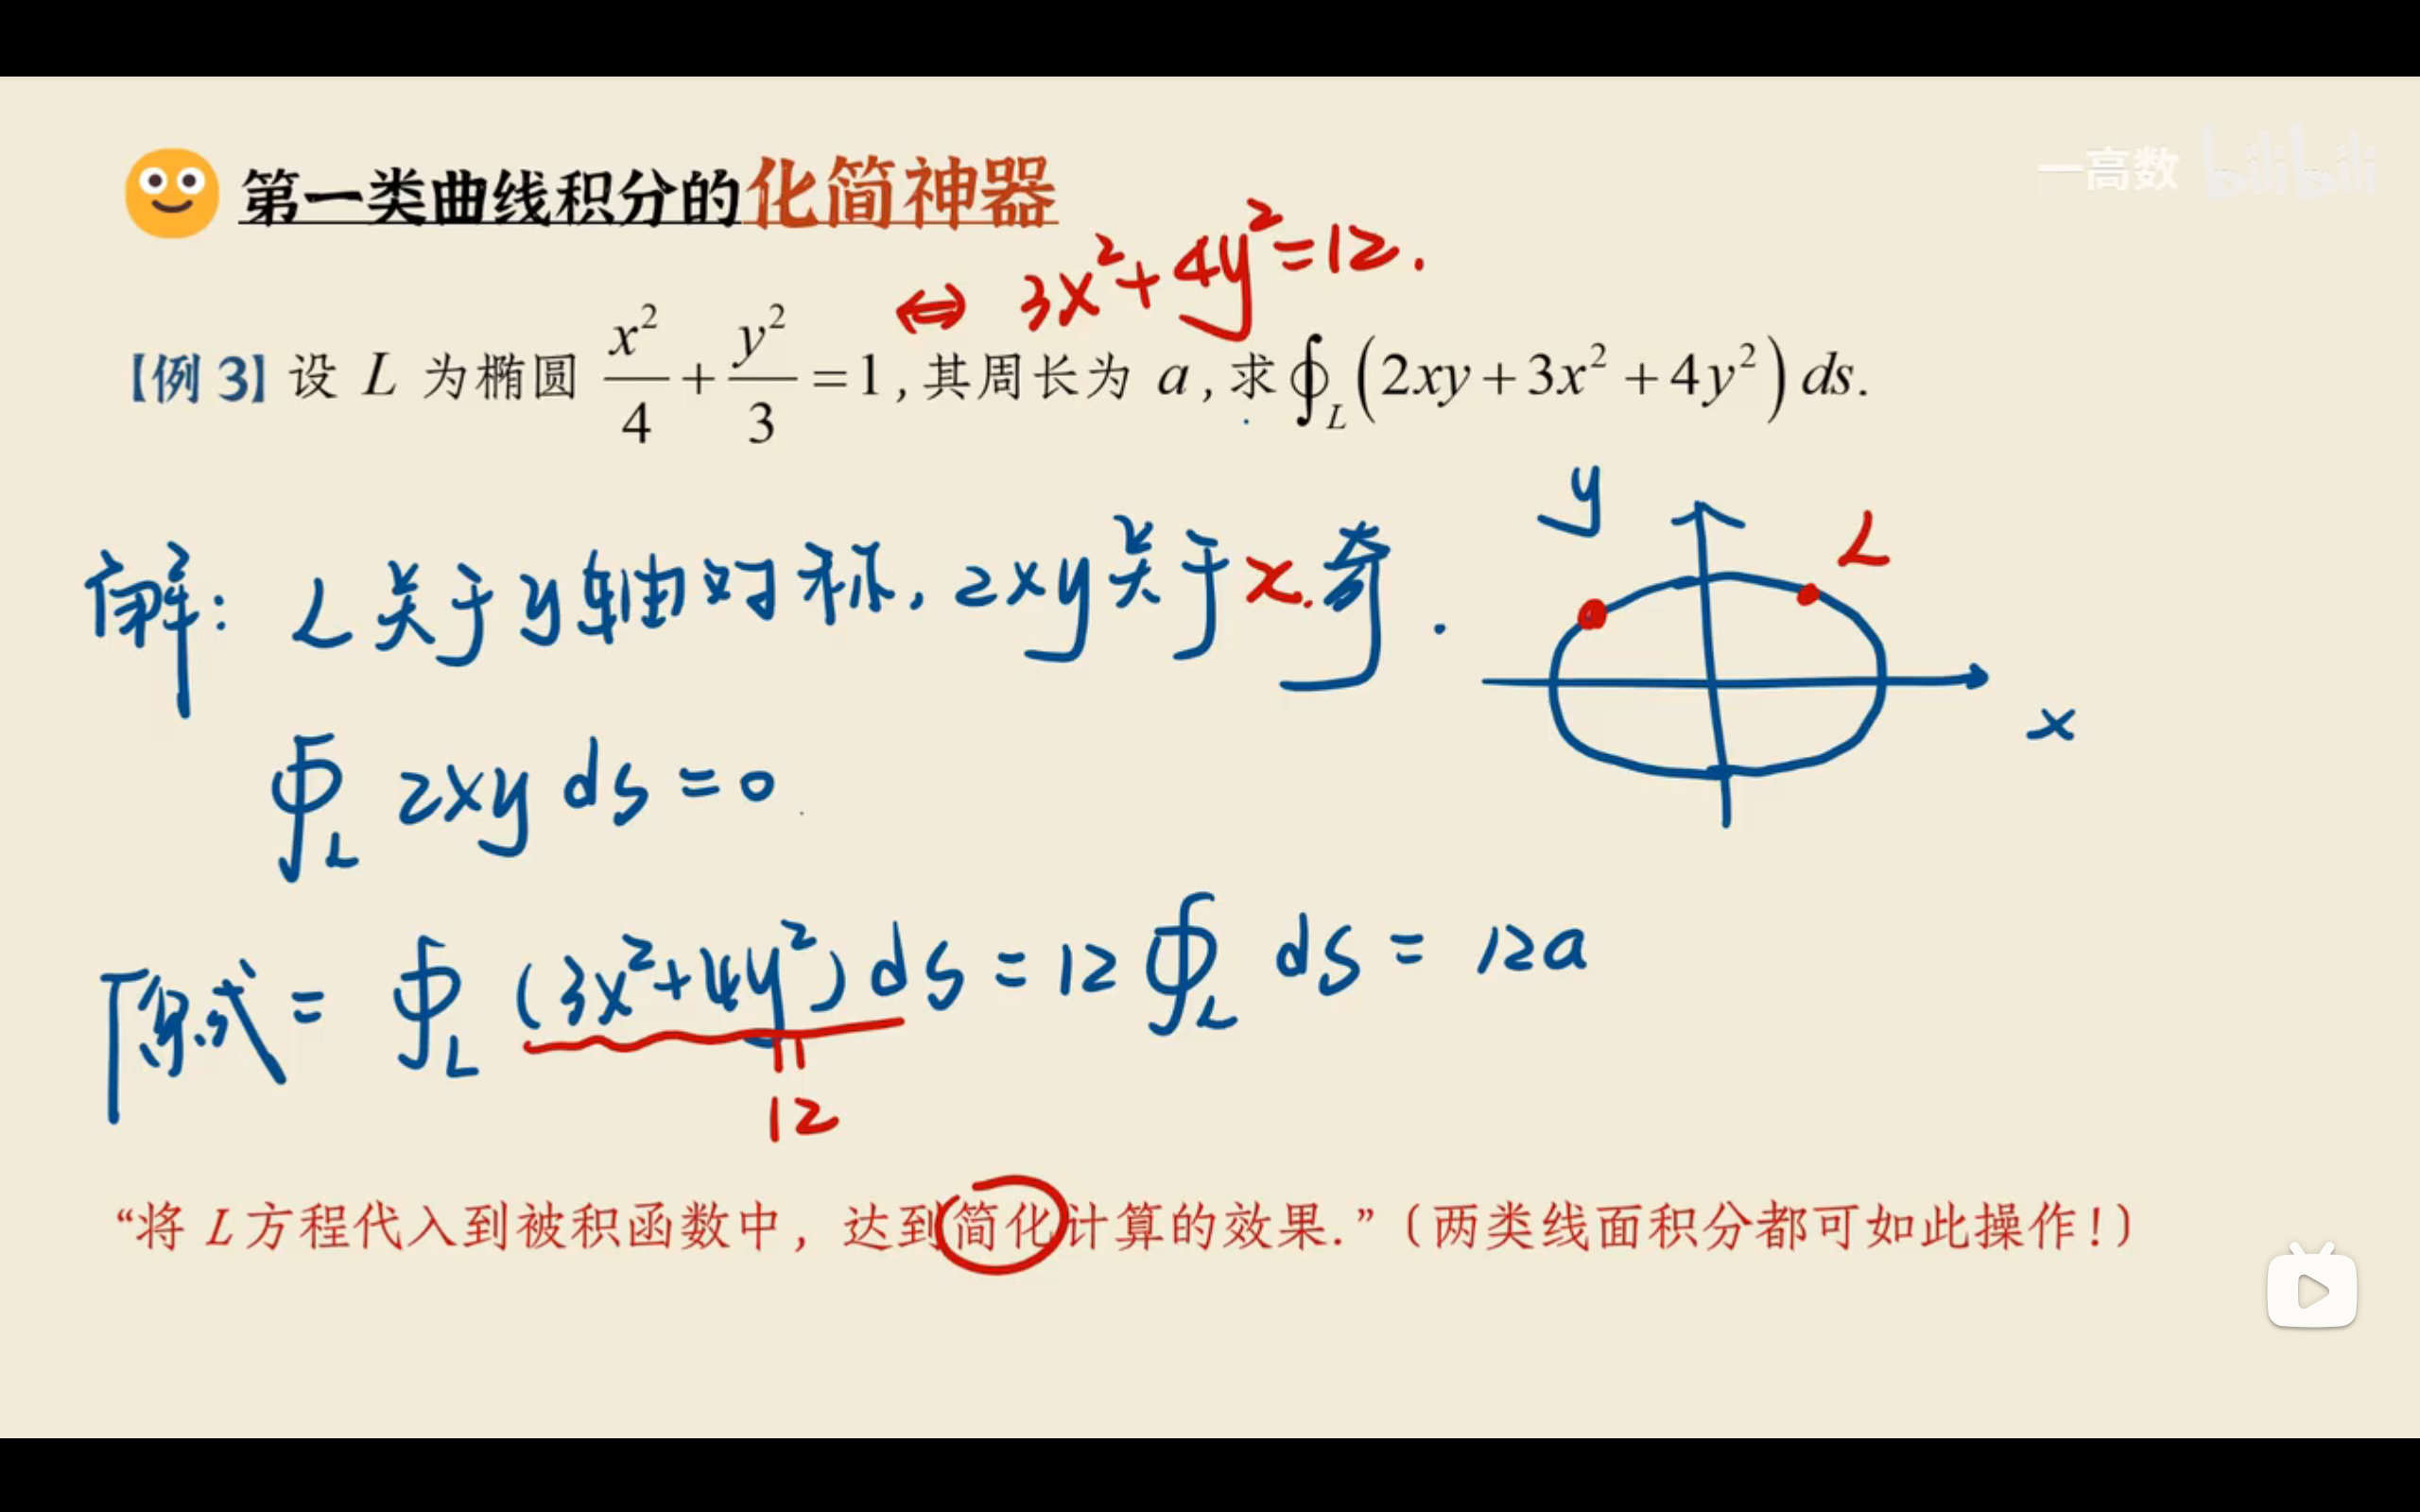 一高数 bilibili
第一类曲线积分的化简神器
⇔ 3x²+4y²=12.
【例 3】设 L 为椭圆 x²/4 + y²/3 = 1 , 其周长为 a , 求 ∮_L (2xy + 3x² + 4y²) ds.
解: L关于y轴对称, 2xy关于x.奇.
y
L
x
∮_L 2xy ds = 0
原式 = ∮_L (3x²+4y²) ds = 12 ∮_L ds = 12a
12
“将 L 方程代入到被积函数中，达到简化计算的效果.”（两类线面积分都可如此操作！）